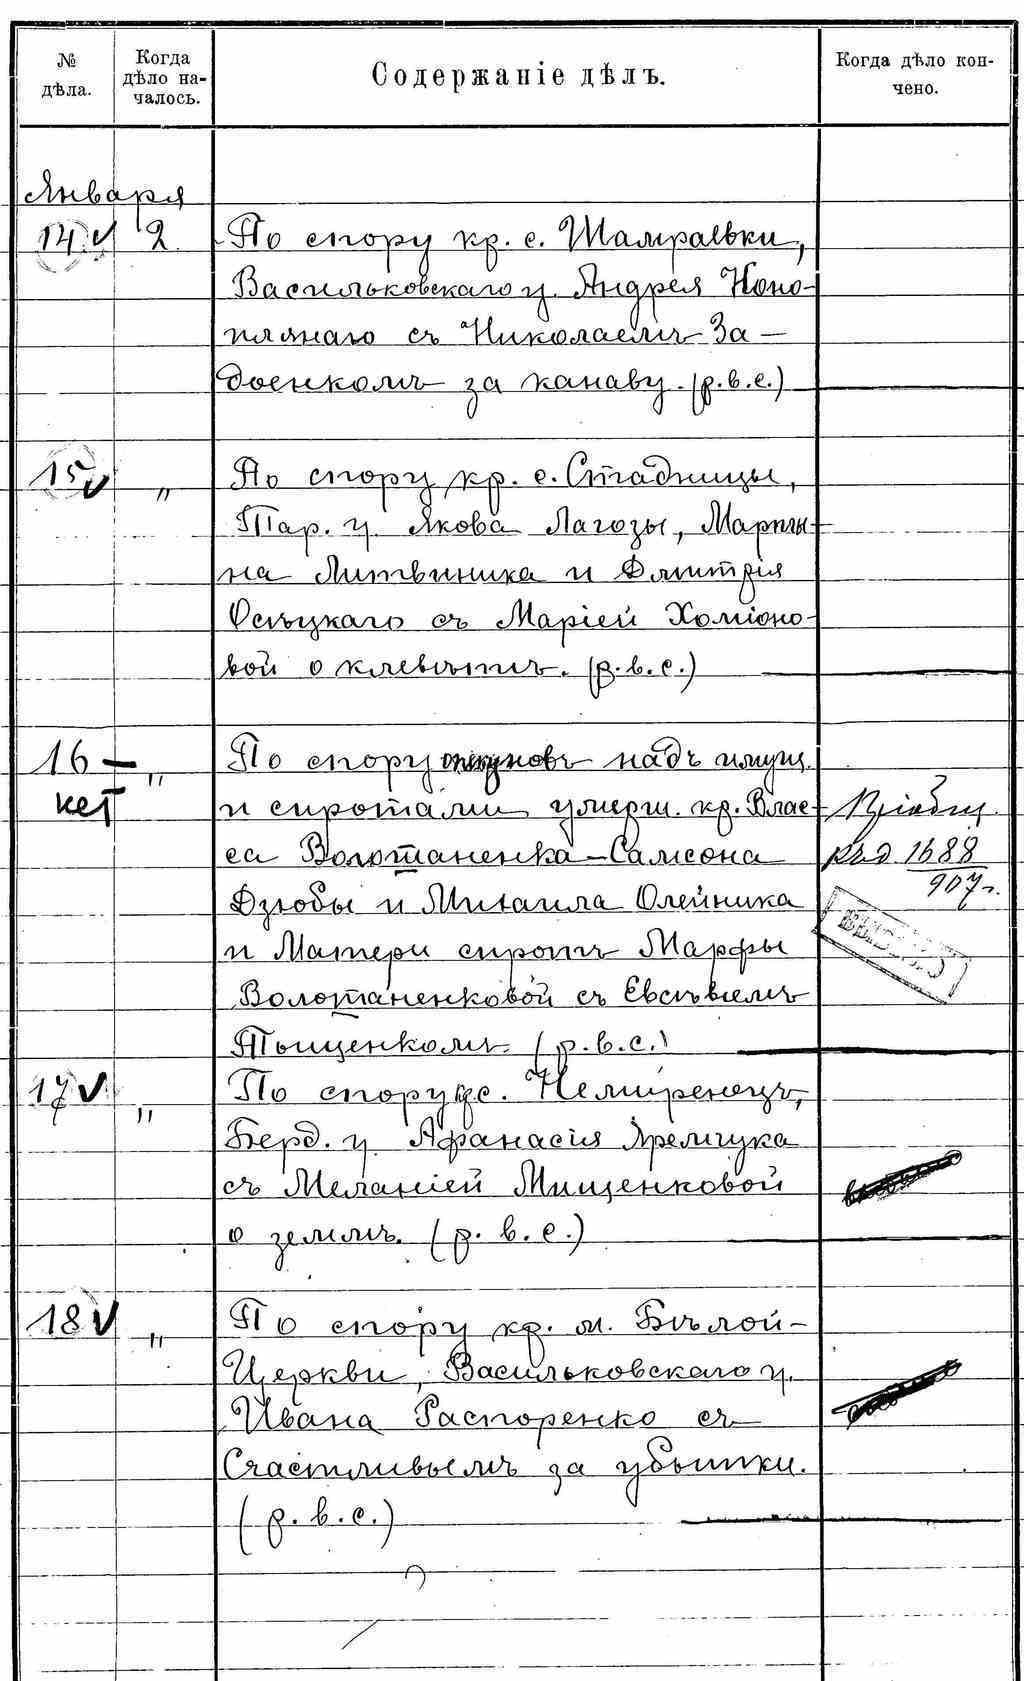 № дѣла.
Когда дѣло началось.
Содержаніе дѣлъ.
Когда дѣло кончено.
Января
14 2 По спору кр. с. Шамраевки,
Васильковскаго у. Андрея Коно-
плянаго съ Николаемъ За-
доенкомъ за канаву. (р.в.с.)
15 " По спору кр. с. Стадницы,
Тар. у. Якова Лагозы, Марты-
на Литвиника и Дмитрія
Осѣцкаго съ Маріей Хоміоно-
вой о клеветѣ. (р.в.с.)
16 — " По спору опекуновъ надъ имущ.
нет и сиротами умерш. кр. Влас-
са Волотаненка – Самсона
ръд 1688
907 г.
Дзюбы и Михаила Олейника
и Матери сиротъ Марфы
Волотаненковой съ Евсѣвіемъ
Тыщенкомъ. (р.в.с.)
17 " По спору с. Немиренецъ,
Берд. у. Афанасія Яремчука
съ Меланіей Мищенковой
о землѣ. (р.в.с.)
18 " По спору кр. м. Бѣлой-
Церкви, Васильковскаго у.
Ивана Распоренко съ
Счастливымъ за убытки.
(р.в.с.)